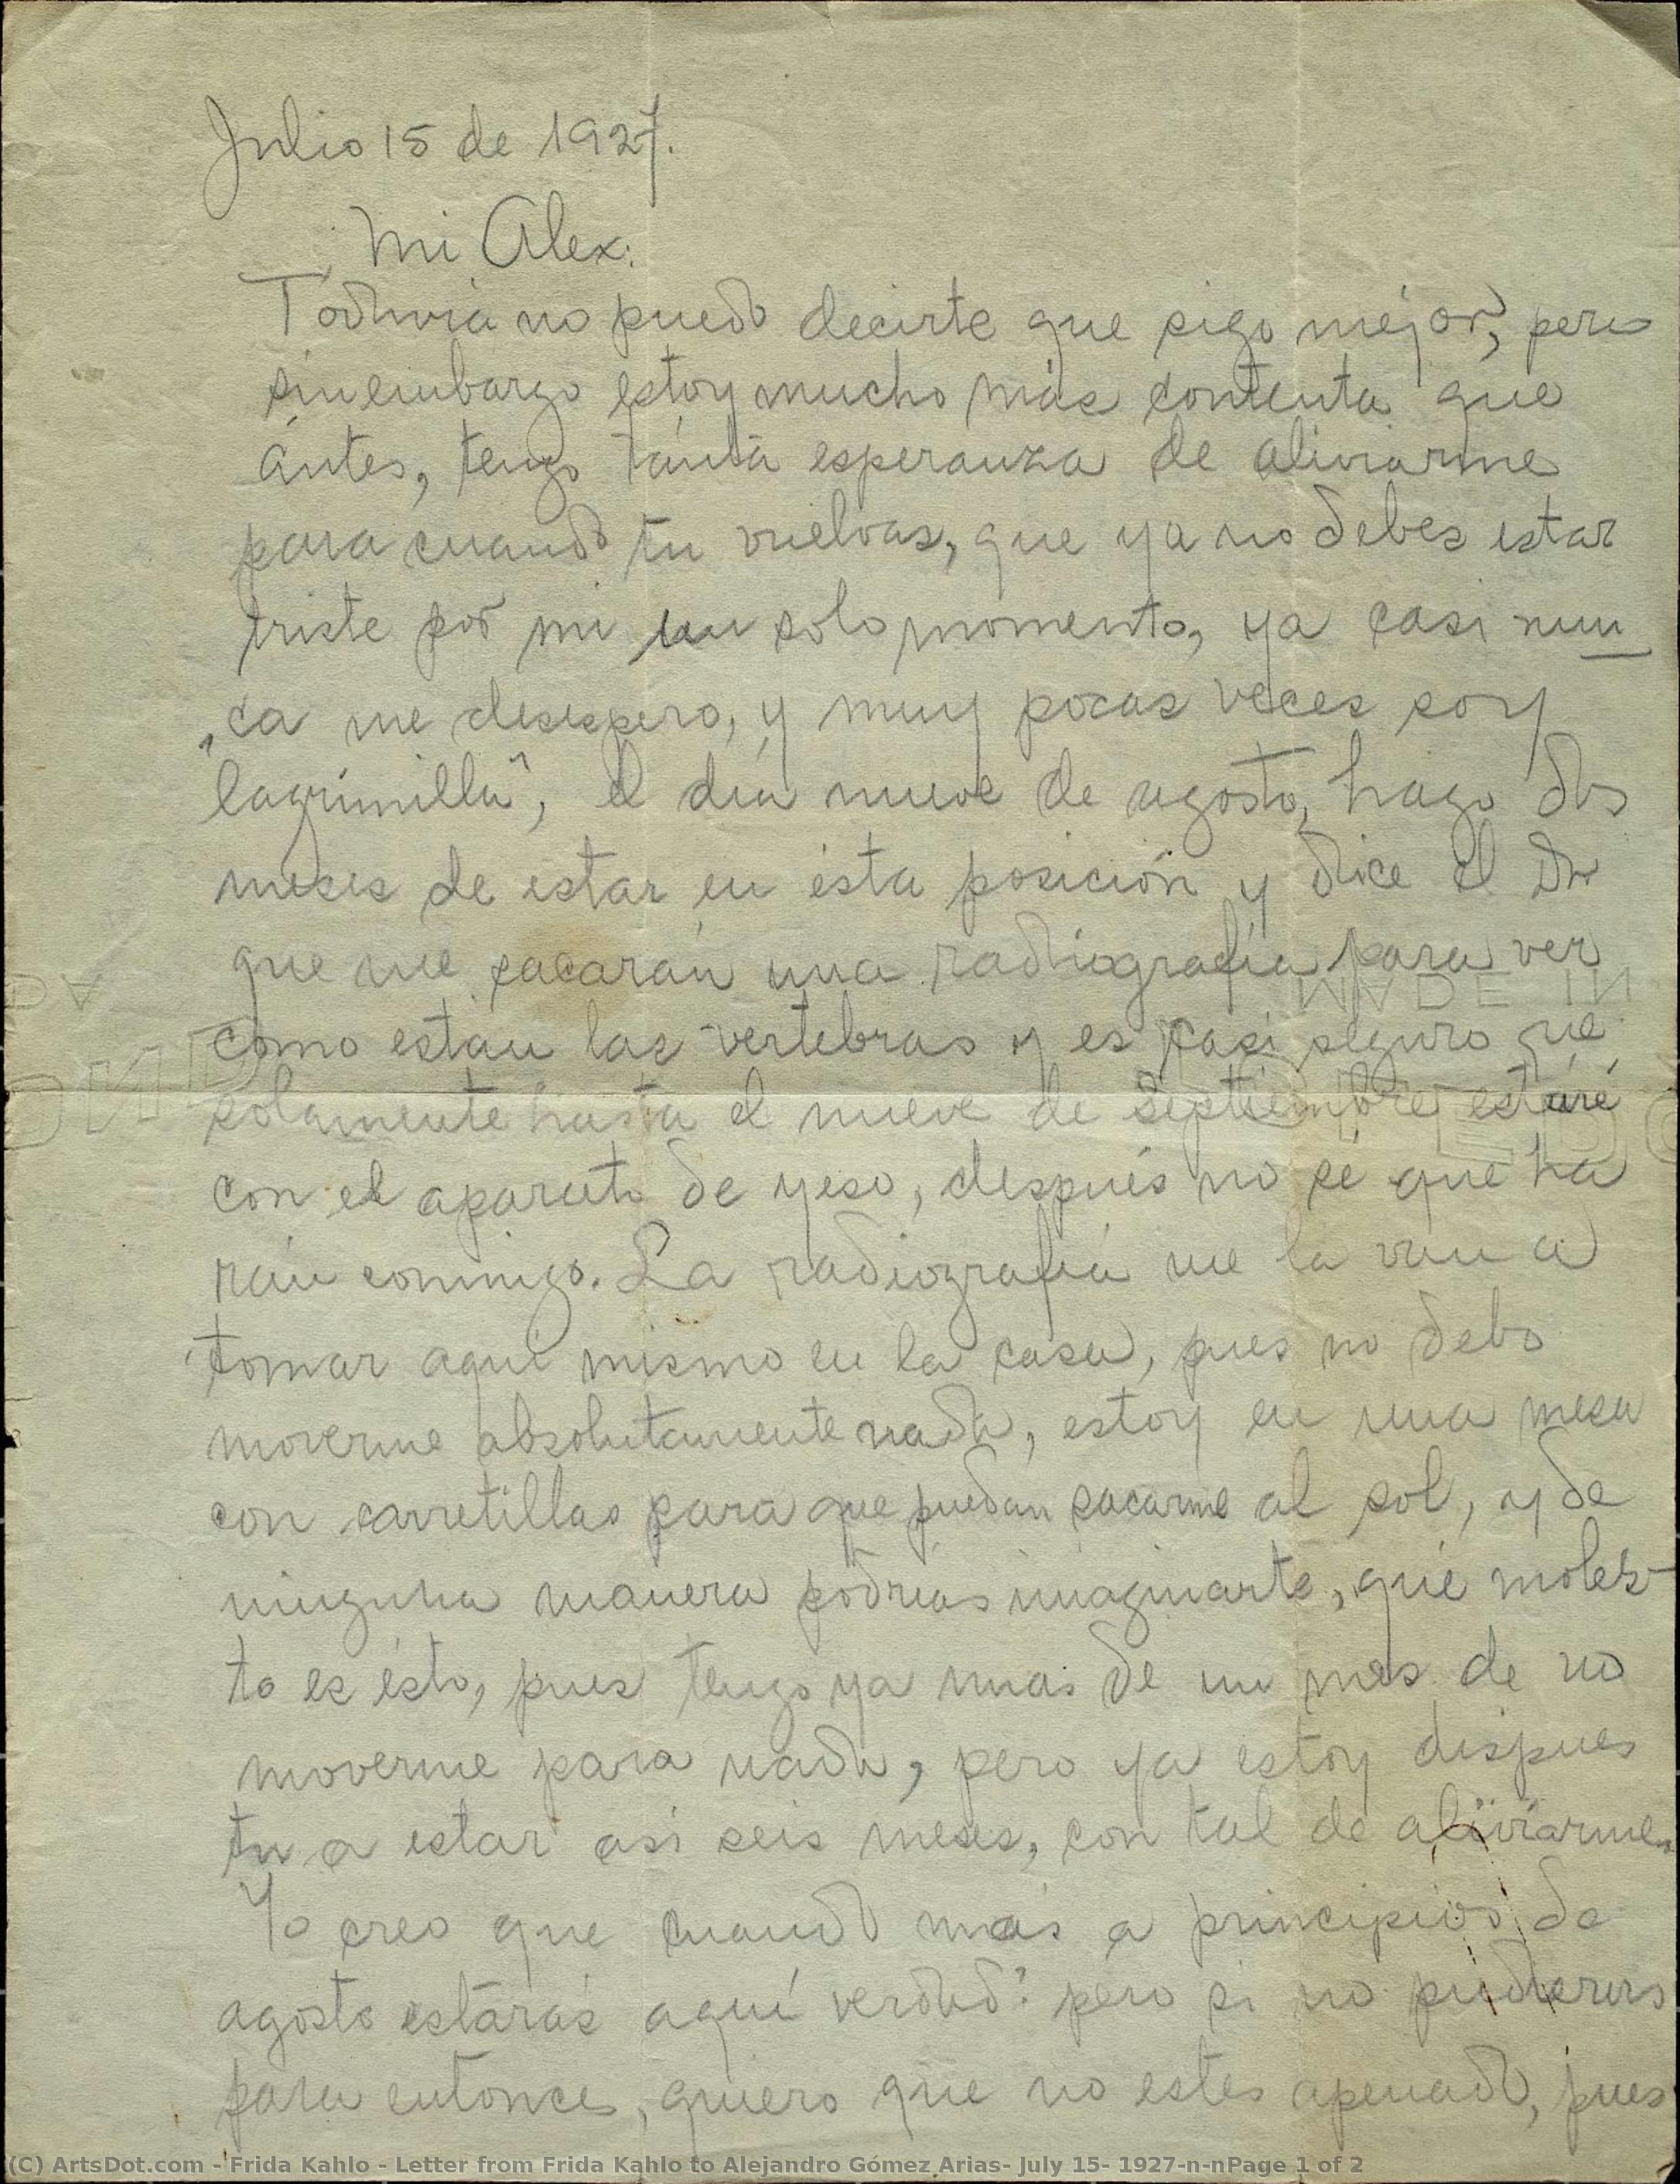 Julio 15 de 1927.
Mi Alex:
Todavía no puedo decirte que sigo mejor, pero
sinembargo estoy mucho más contenta que
ántes, tengo tánta esperanza de aliviarme
para cuando tu vuelvas, que ya no debes estar
triste por mi un solo momento, ya casi nun
ca me desespero, y muy pocas veces soy
"lagrimilla", el día nueve de agosto, hago dos
meses de estar en ésta posición y dice el Dr
que me sacarán una radiografía para ver
como están las vertebras y es casi seguro que
solamente hasta el nueve de Septiembre estaré
con el aparato de yeso, después no sé que ha
rán conmigo. La radiografía me la van a
tomar aquí mismo en la casa, pues no debo
moverme absolutamente nada, estoy en una mesa
con carretillas para que puedan sacarme al sol, y de
ninguna manera podrías imaginarte, qué moles-
to es ésto, pues tengo ya mas de un mes de no
moverme para nada, pero ya estoy dispues
ta a estar así seis meses, con tal de aliviarme.
Yo creo que cuando más a principios de
agosto estarás aquí verdad? pero si no pudieras
para entonces, quiero que no estes apenado, pues
MADE IN
(C) ArtsDot.com - Frida Kahlo - Letter from Frida Kahlo to Alejandro Gómez Arias- July 15- 1927-n-nPage 1 of 2